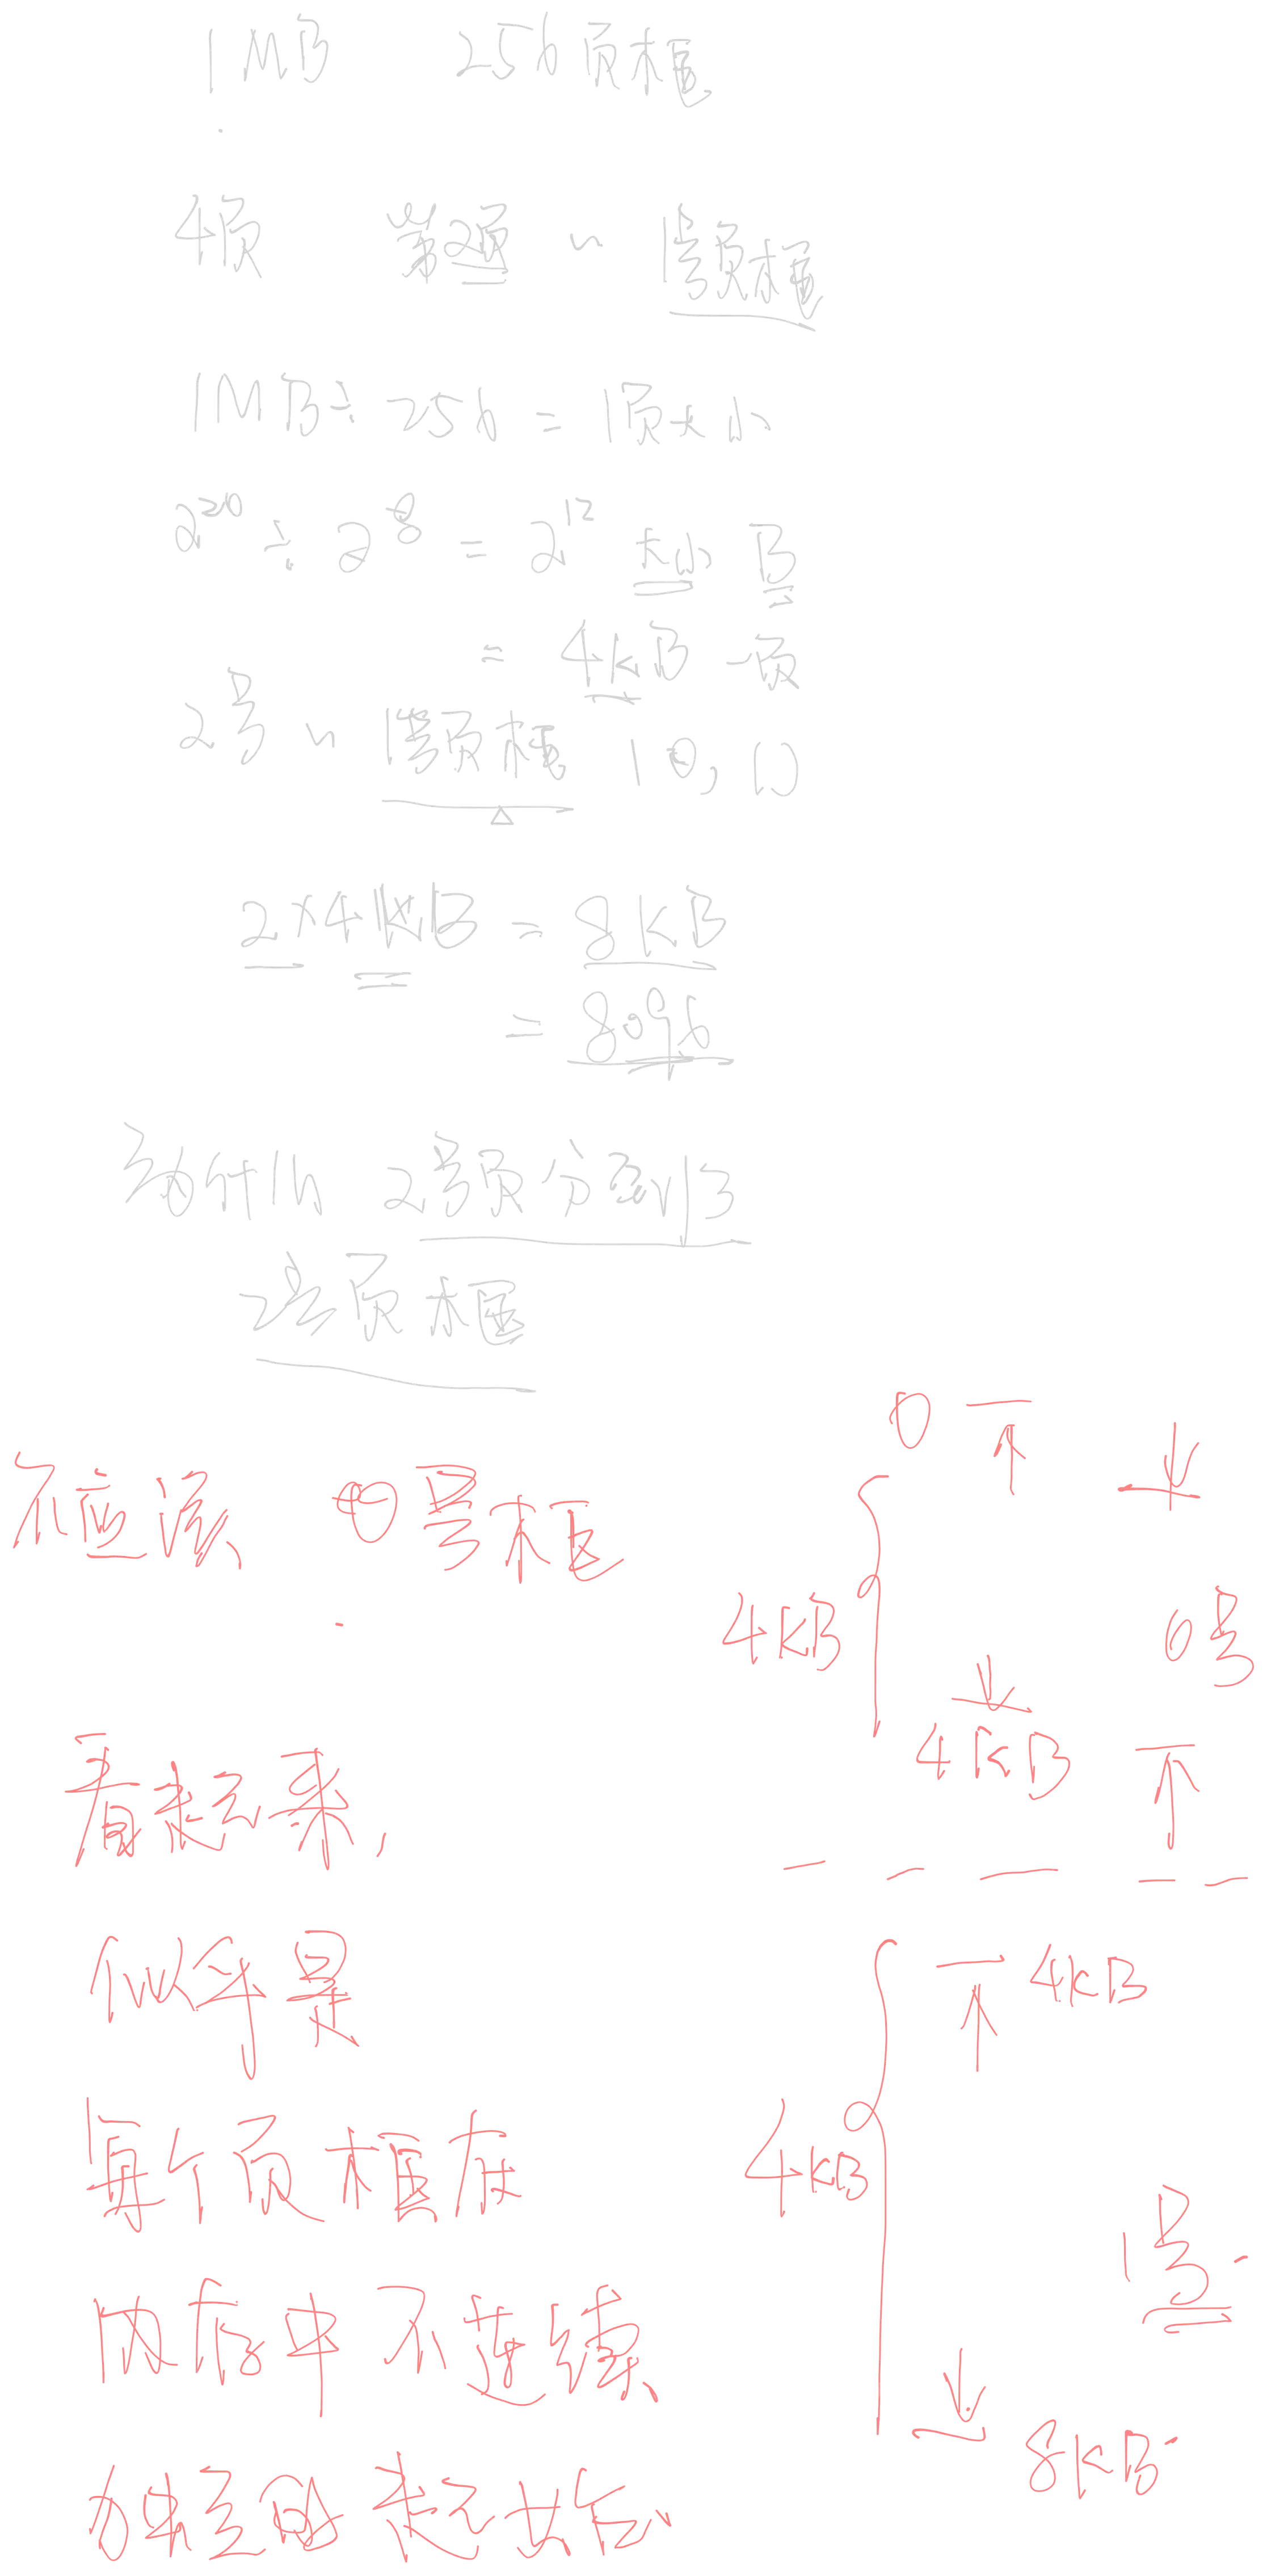 1MB 256页框
4页 第2页 ~ 1号页框
1MB÷256=1页大小
2^20 ÷ 2^8 = 2^12 大小 B
= 4KB 一页
2号 ~ 1号页框 10,11
2×4KB = 8KB
= 8096
为什么 2号页分配到
2号页框
不应该 0号框
看起来,
似乎是
每个页框在
内存中不连续、
独立的起始
0
4KB
0号
4KB
4KB
4KB
1号
8KB